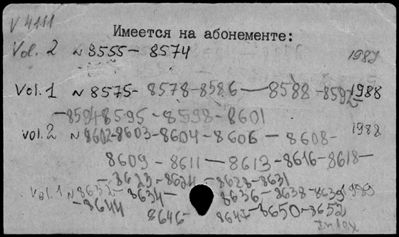 V 4111
Имеется на абонементе:
Vol. 2 N 8555 - 8574 1987
Vol. 1 N 8575 - 8578 - 8586 — 8588 - 8592 1988
- 8594 8595 - 8598 - 8601
vol. 2 N 8602 - 8603 - 8604 - 8606 - 8608 - 1988
8609 - 8611 — 8613 - 8616 - 8618 -
- 8623 - 8624 - 8628 - 8631
vol. 1 N 8632 - 8634 - 8636 - 8638 - 8639 1989
- 8644 8646 - 8647 - 8650 - 8652